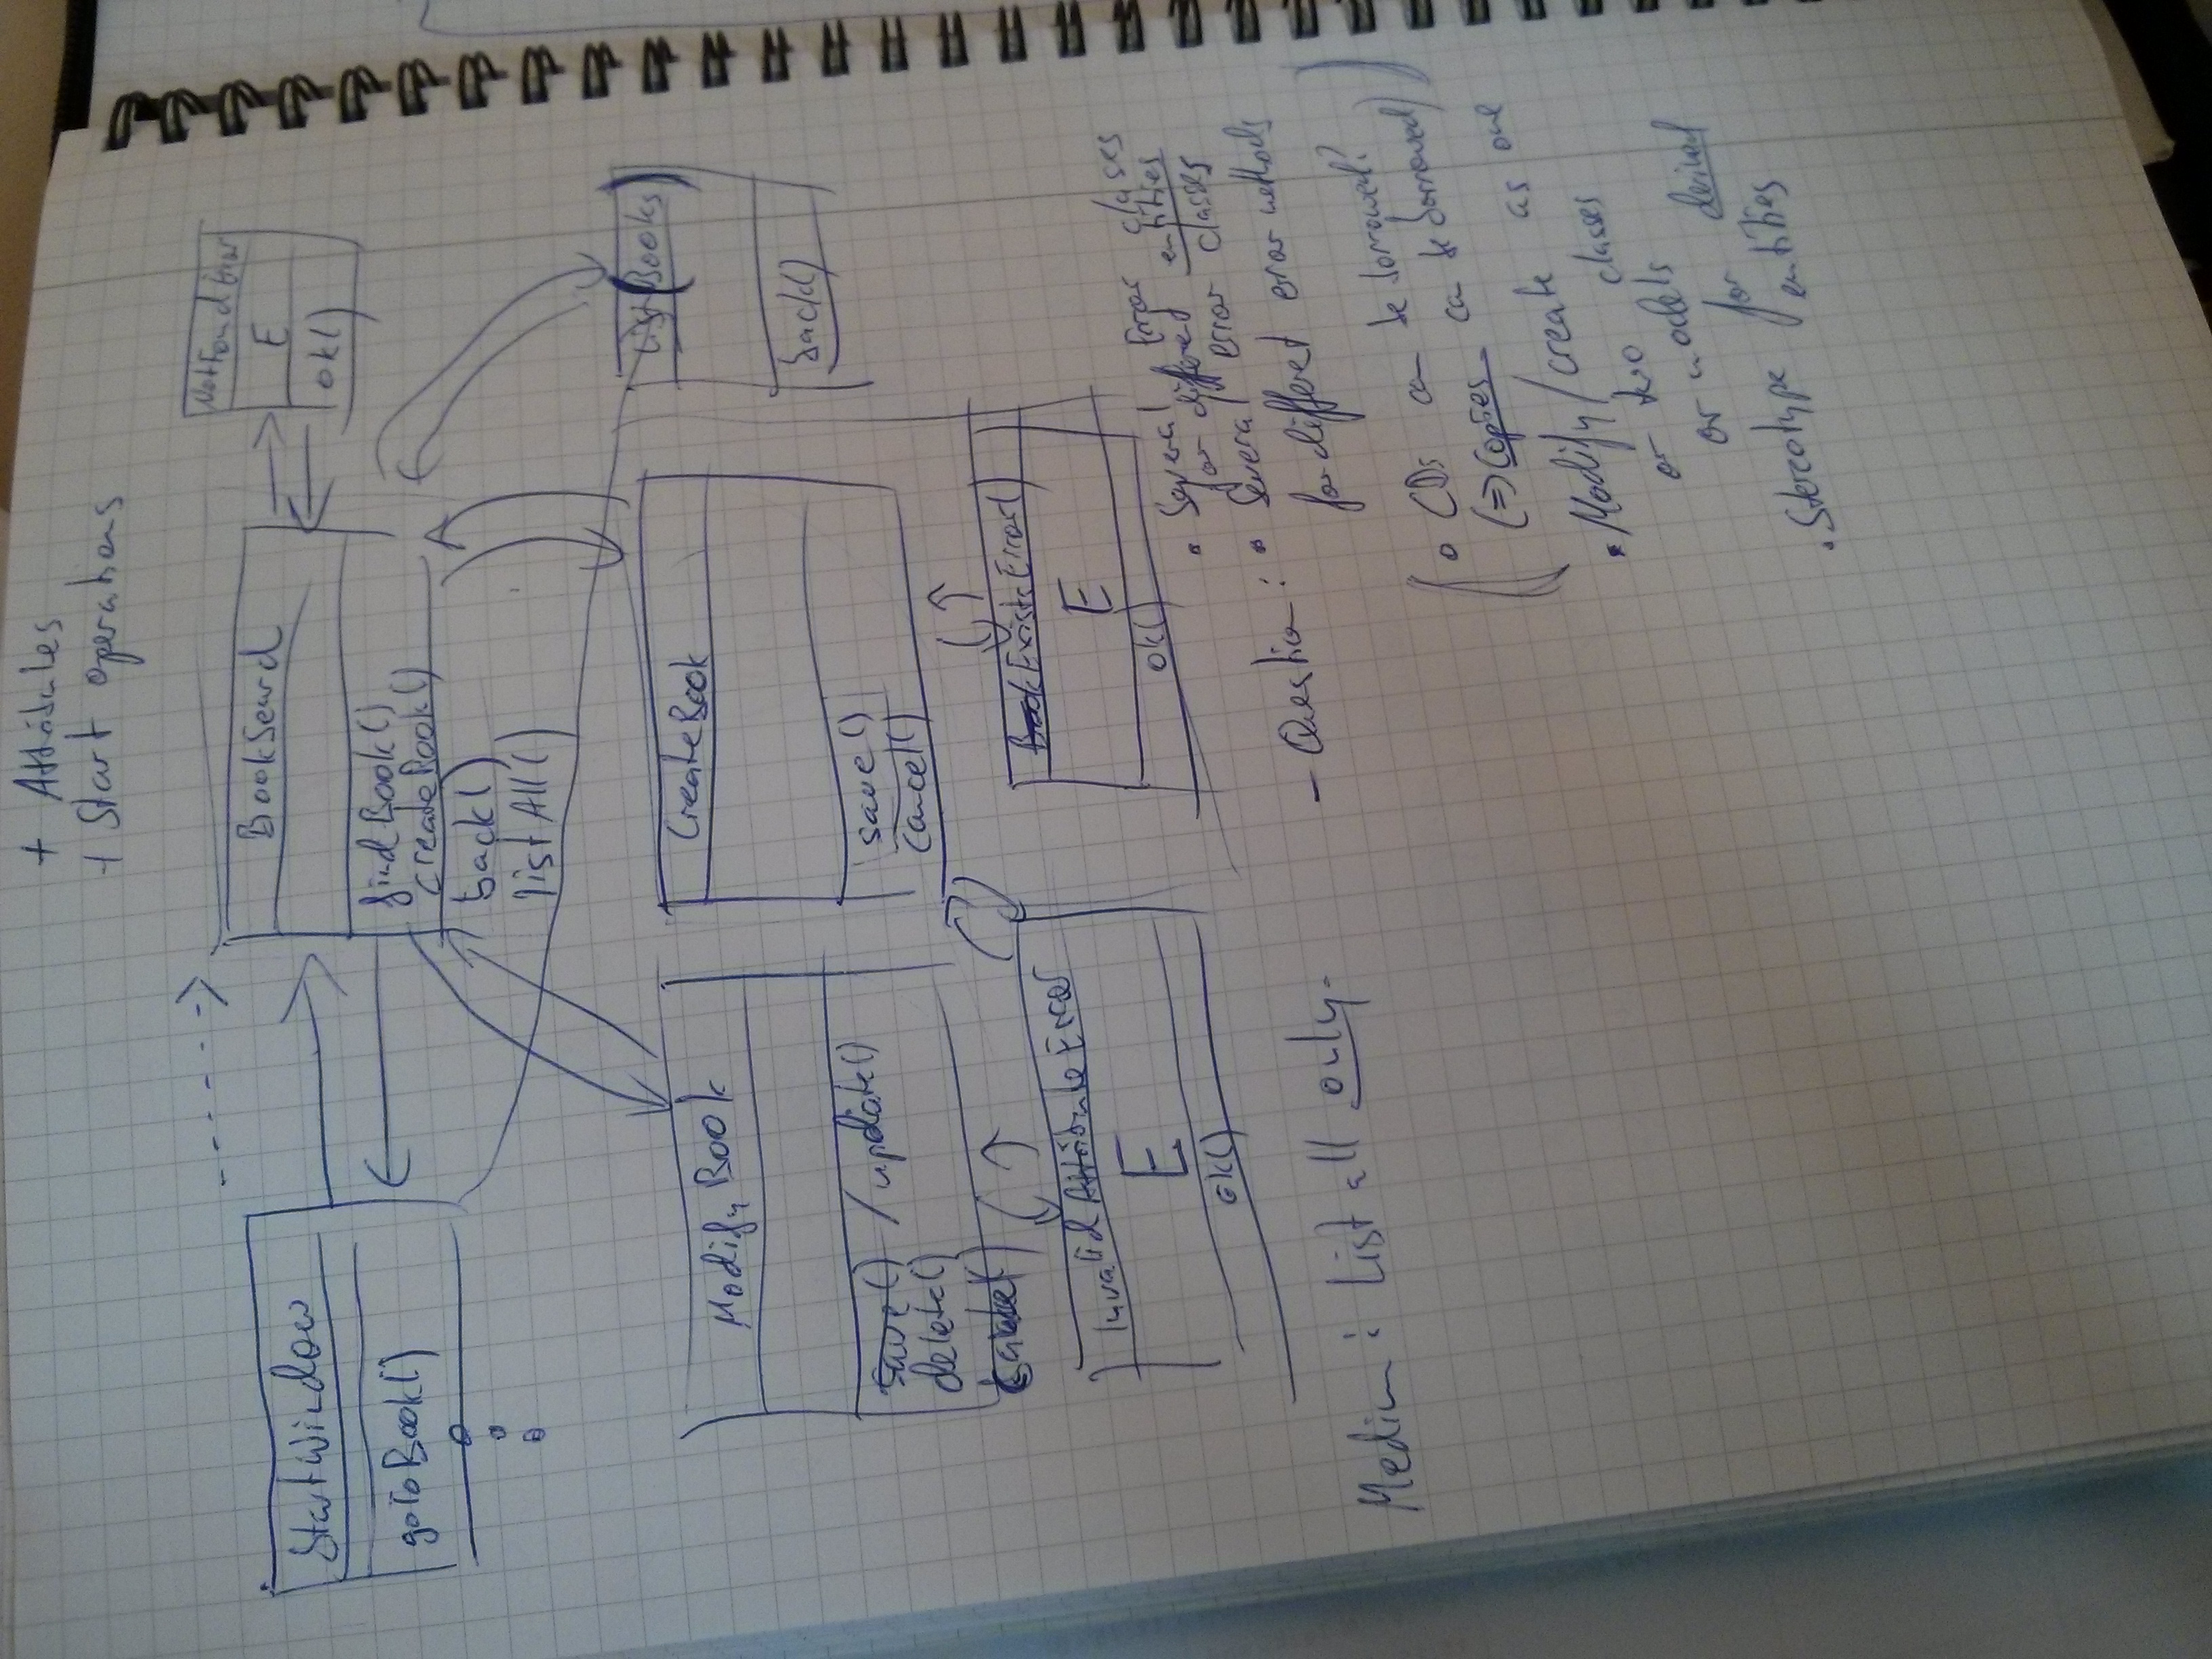 + Attributes
+ Start operations
StartWindow
goToBook()
BookSearch
findBook()
createBook()
back()
listAll()
NotFoundError
E
ok()
ModifyBook
save() / update()
delete()
CreateBook
save()
cancel()
List(Books)
back()
InvalidAttributeError
E
ok()
BookExistsError()
E
ok()
Medium : List all only.
- Question : • Several Error classes
for different entities
• Several error classes
for different error methods
o CDs can be borrowed?
(=> Copies can be borrowed)
• Modify/create as one
or two classes
or models
• Stereotype for derived
entities